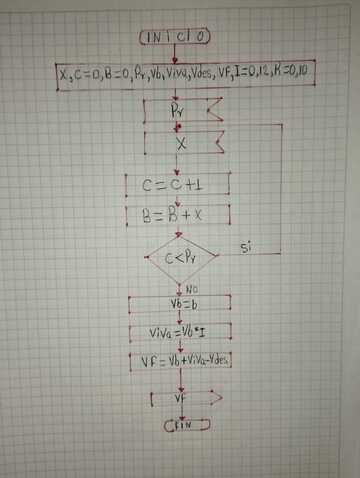 INICIO
X, C=0, B=0, Pr, Vb, Viva, Vdes, VF, I=0,12, K=0,10
Pr
X
C = C+1
B = B + x
C < Pr
si
NO
Vb = b
Viva = Vb * I
VF = Vb + Viva - Vdes
VF
FIN